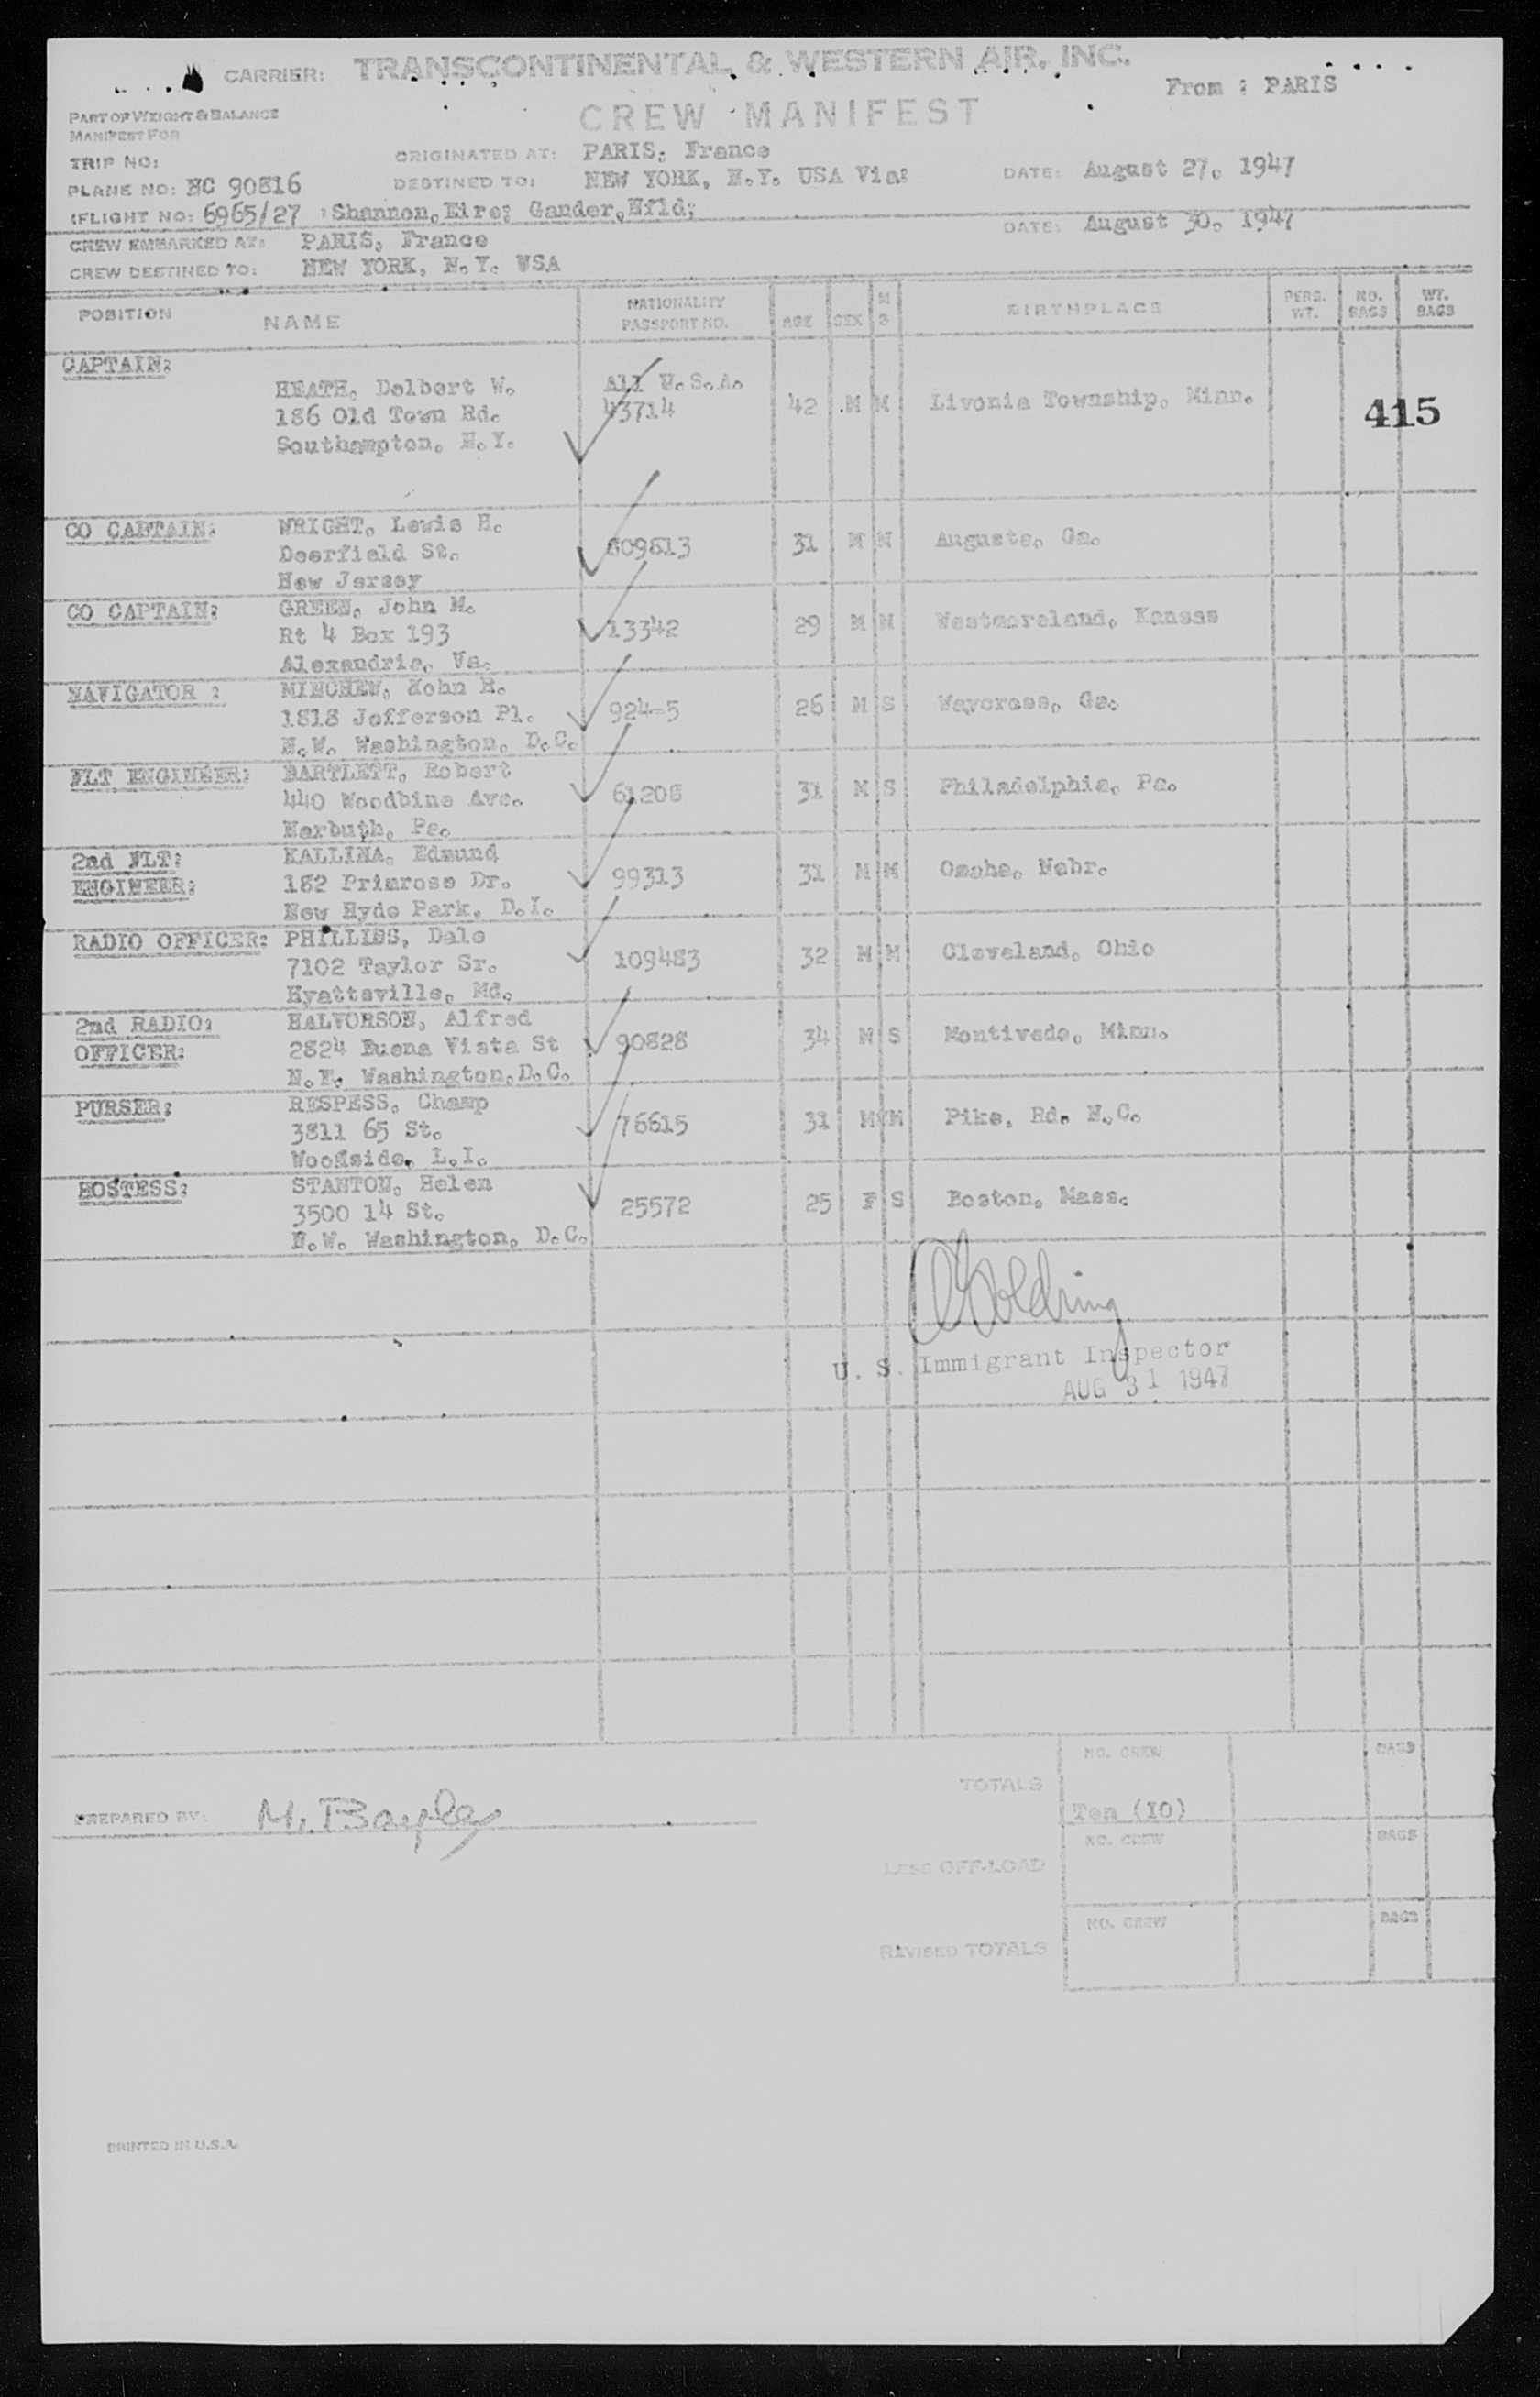 CARRIER: TRANSCONTINENTAL & WESTERN AIR. INC.
From : PARIS
PART OF WEIGHT & BALANCE
MANIFEST FOR
CREW MANIFEST
TRIP NO: ORIGINATED AT: PARIS, France
PLANE NO: NC 90816 DESTINED TO: NEW YORK, N.Y. USA Via: DATE: August 27, 1947
FLIGHT NO: 6965/27 Shannon, Eire; Gander, Nfld;
CREW EMBARKED AT: PARIS, France DATE: August 30, 1947
CREW DESTINED TO: NEW YORK, N.Y. USA
POSITION NAME NATIONALITY PASSPORT NO. AGE SEX M S BIRTHPLACE PERS. WT. NO. BAGS WT. BAGS
CAPTAIN:
HEATH, Delbert W. All U.S.A.
186 Old Town Rd. 43714 42 M M Livonia Township, Minn. 415
Southampton, N.Y.
CO CAPTAIN: WRIGHT, Lewis H.
Deerfield St. 809813 31 M M Augusta, Ga.
New Jersey
CO CAPTAIN: GREEN, John M.
Rt 4 Box 193 13342 29 M M Westmoreland, Kansas
Alexandria, Va.
NAVIGATOR : MINCHEW, Kohn R.
1818 Jefferson Pl. 924-5 26 M S Waycross, Ga.
N.W. Washington, D.C.
FLT ENGINEER: BARTLETT, Robert
440 Woodbine Ave. 61208 31 M S Philadelphia, Pa.
Narbuth, Pa.
2nd FLT: KALLINA, Edmund
ENGINEER: 182 Primrose Dr. 99313 31 M M Omaha, Nebr.
New Hyde Park, D.I.
RADIO OFFICER: PHILLIPS, Dale
7102 Taylor Sr. 109483 32 M M Cleveland, Ohio
Hyattsville, Md.
2nd RADIO: HALVORSON, Alfred
OFFICER: 2824 Buena Vista St 90828 34 M S Montivedo, Minn.
N.E. Washington, D.C.
PURSER: RESPESS, Champ
3811 65 St. 76615 31 M M Pike, Rd. N.C.
Woodside, L.I.
HOSTESS: STANTON, Helen
3500 14 St. 25572 25 F S Boston, Mass.
N.W. Washington, D.C.
Goldring
U. S. Immigrant Inspector
AUG 31 1947
TOTALS NO. CREW BAGS
Ten (10)
PREPARED BY: M. Bayley
LESS OFF-LOAD NO. CREW BAGS
REVISED TOTALS NO. CREW BAGS
PRINTED IN U.S.A.